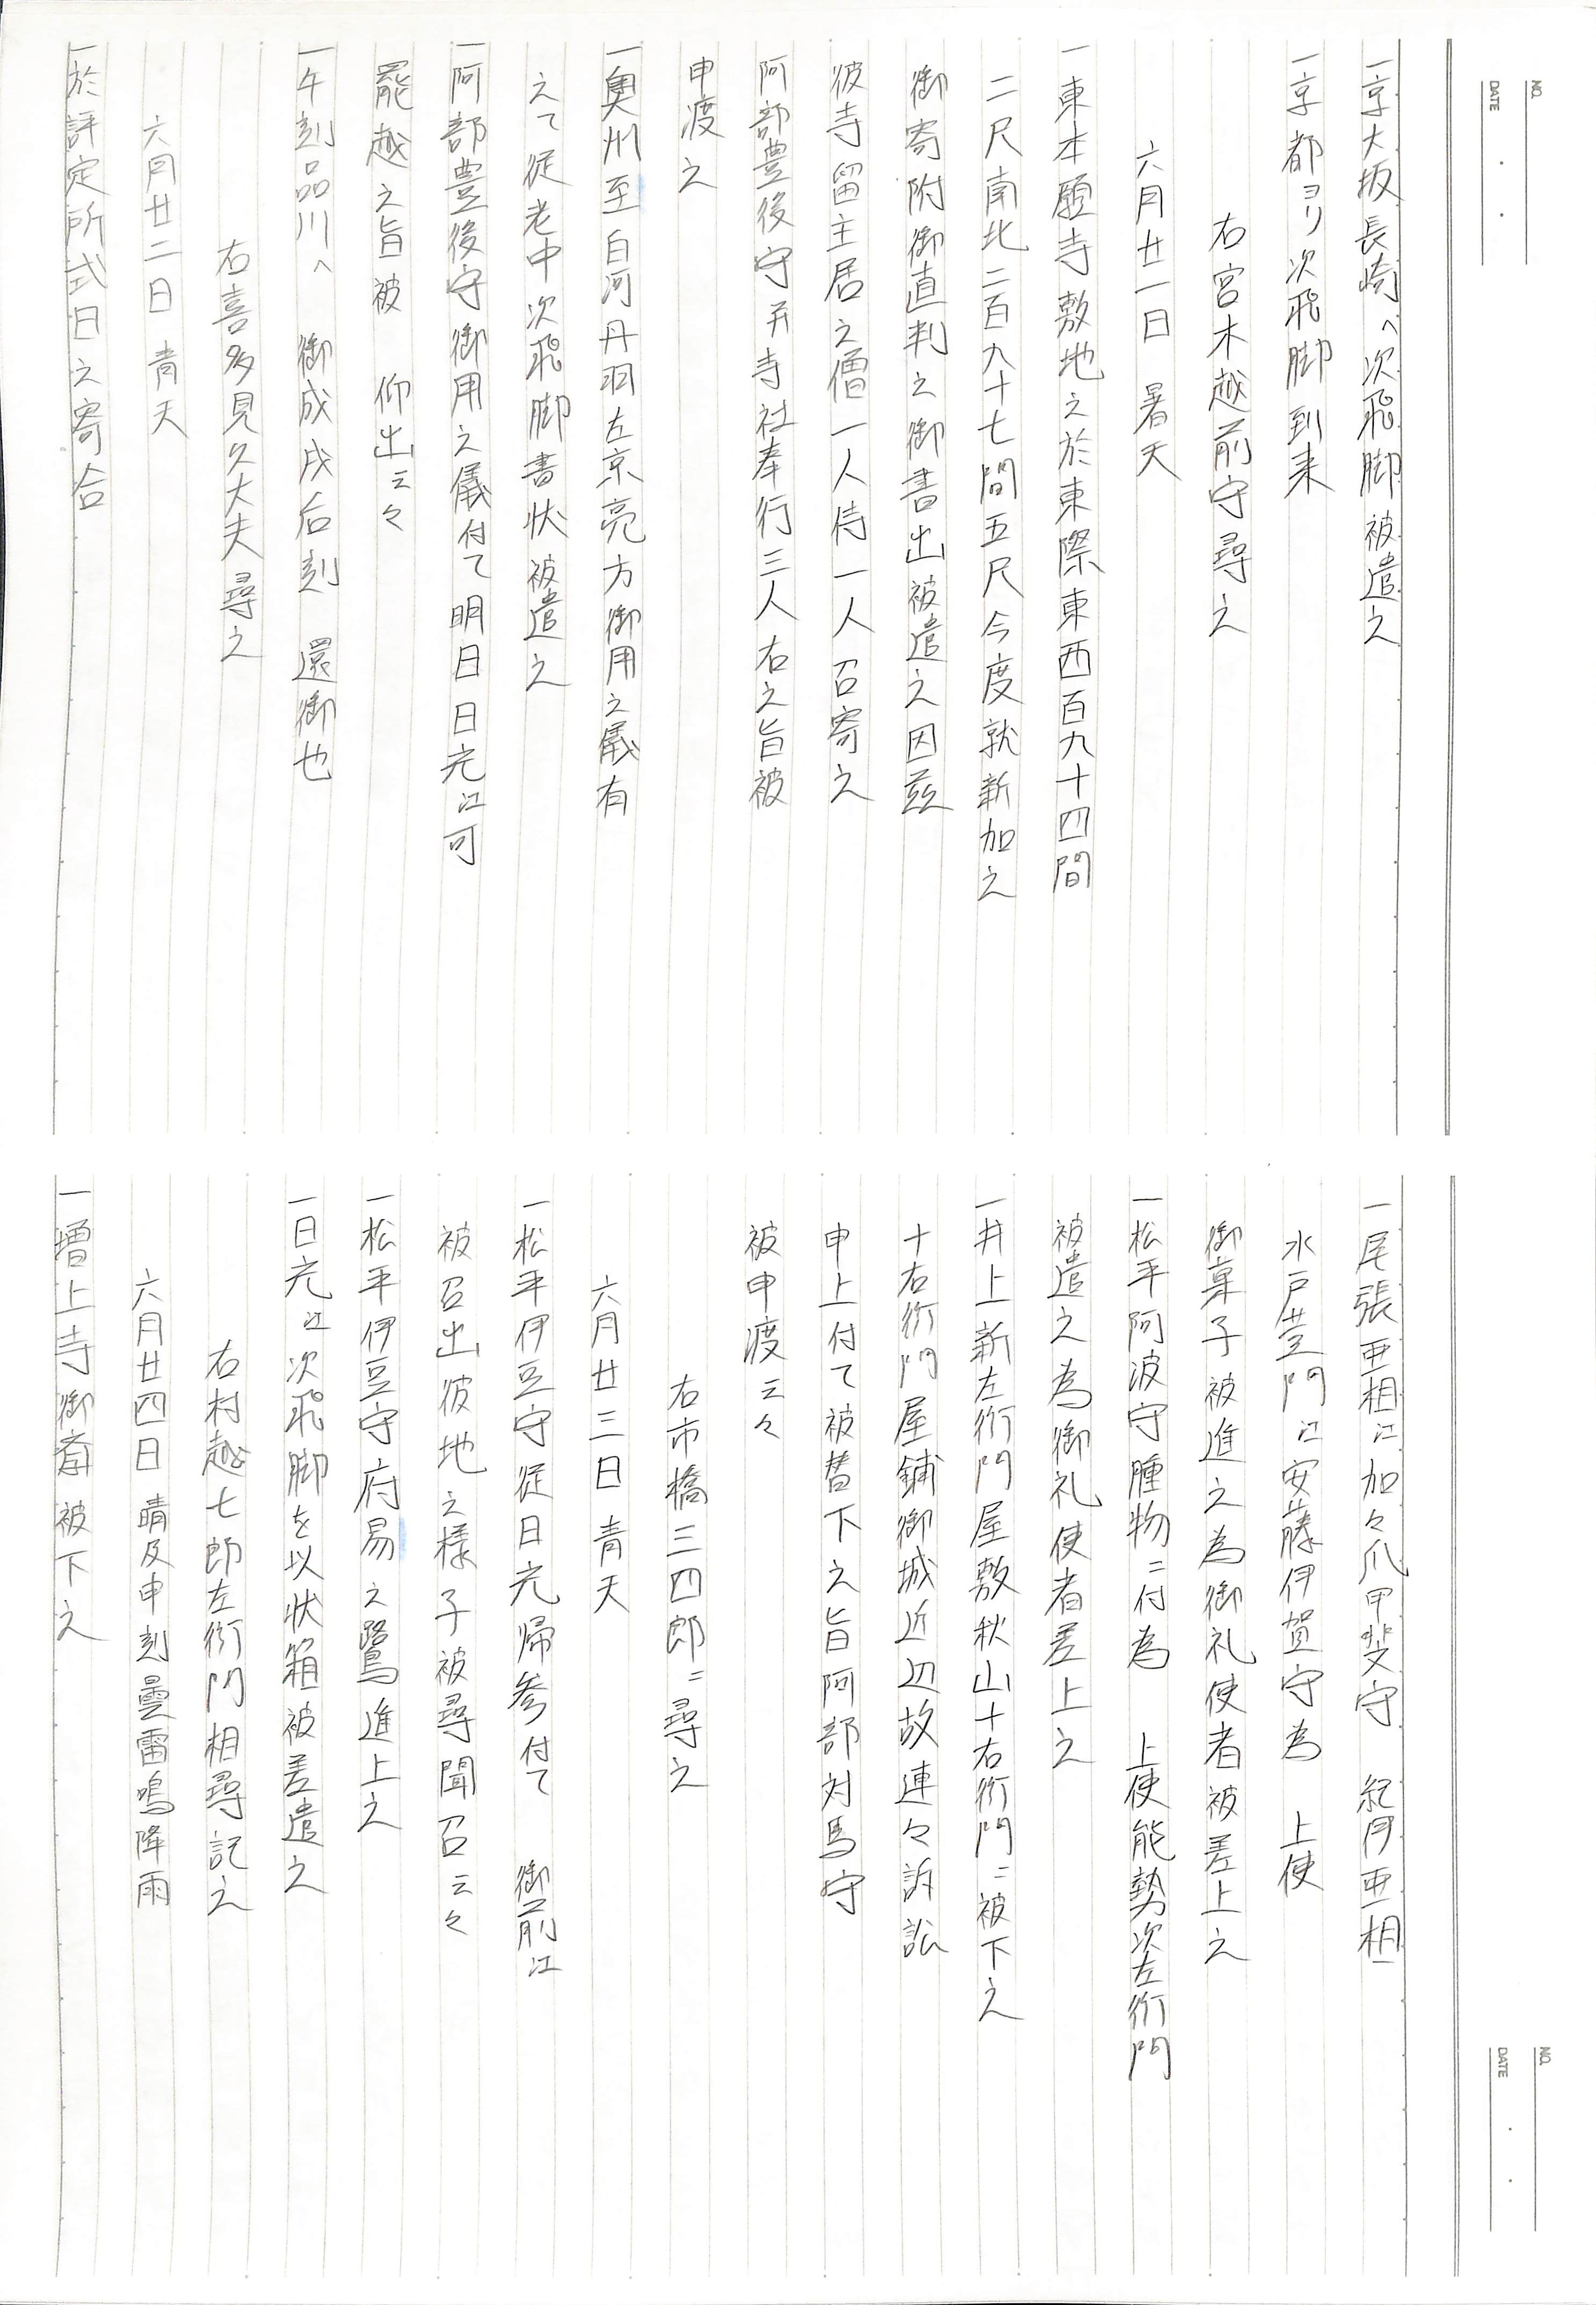 NO.
DATE
一京大坂長崎へ次飛脚被遣之
一京都ヨリ次飛脚到来
右宮木越前守尋之
六月廿一日 暑天
一東本願寺敷地之於東際東西百九十四間
二尺南北二百九十七間五尺今度就新加之
御寄附御直判之御書出被遣之因茲
彼寺留主居之僧一人侍一人召寄之
阿部豊後守并寺社奉行三人右之旨被
申渡之
一奥州至白河丹羽左京亮方御用之儀有
之て従老中次飛脚書状被遣之
一阿部豊後守御用之儀付て明日日光江可
罷越之旨被 仰出云々
一午刻品川へ 御成戌后刻 還御也
右喜多見久大夫尋之
六月廿二日 青天
一於評定所式日之寄合
NO.
DATE
一尾張亜相江加々爪甲斐守 紀伊亜相
水戸黄門江安藤伊賀守為 上使
御菓子被進之為御礼使者被差上之
一松平阿波守腫物ニ付為 上使能勢次左衛門
被遣之為御礼使者差上之
一井上新左衛門屋敷秋山十右衛門ニ被下之
十右衛門屋鋪御城近辺故連々訴訟
申上付て被替下之旨阿部対馬守
被申渡云々
右市橋三四郎ニ尋之
六月廿三日 青天
一松平伊豆守従日光帰参付て 御前江
被召出彼地之様子被尋聞召云々
一松平伊豆守府易之鷺進上之
一日光江次飛脚を以状箱被差遣之
右村越七郎左衛門相尋記之
六月廿四日 晴及申刻曇雷鳴降雨
一増上寺御斎被下之